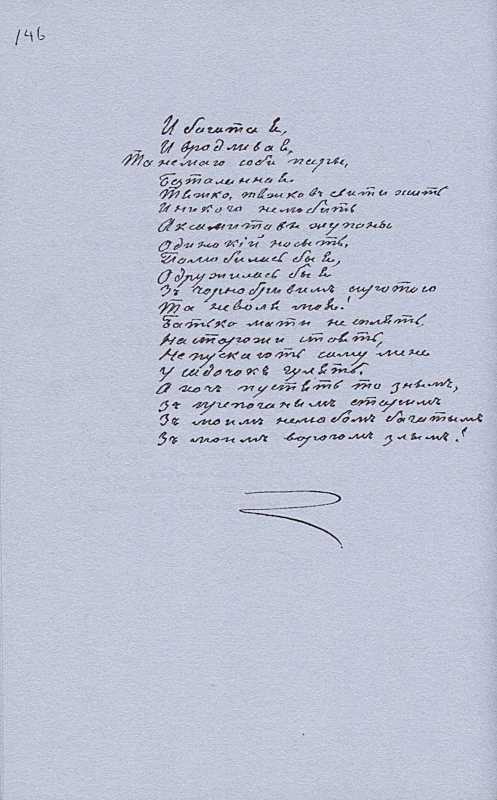 146
И богата ѣ,
И вродлива ѣ,
Та немаю соби пары,
Безталанна ѣ.
Тяжко, тяжко въ свити жить
И никого нелюбить
Аксамитови жупаны
Одинокій носыть,
Полюбилась бы ѣ,
Одружилась бы ѣ
Зъ чорнобривимъ сиротою
Та неволя моя!
Батько мати не сплять,
На сторожи стоять,
Непускають саму мене
У садочокъ гулять.
А хочъ пустять то зънымъ,
Зъ препоганымъ старимъ
Зъ моимъ нелюбомъ богатымъ
Зъ моимъ ворогомъ злымъ!